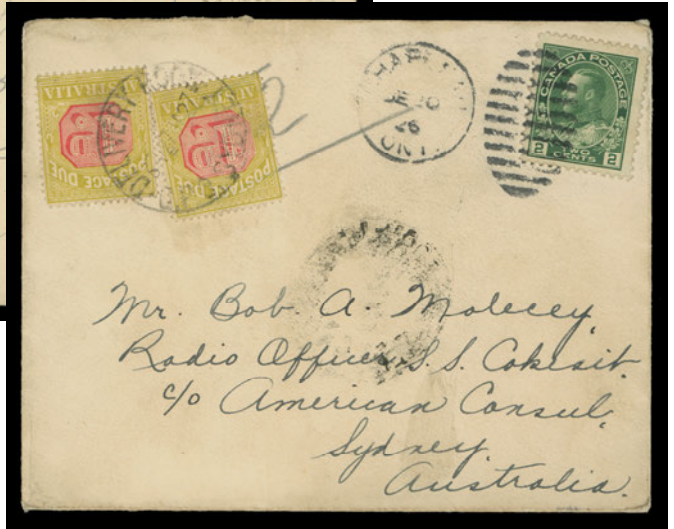 AUSTRALIA
POSTAGE DUE
1D
AUSTRALIA
POSTAGE DUE
1D
DELIVERY ROOM
10
26
ONT
CANADA POSTAGE
2 TWO CENTS 2
Mr. Bob. A. Molecey
Radio Officer S.S. Cokesit.
c/o American Consul,
Sydney.
Australia.